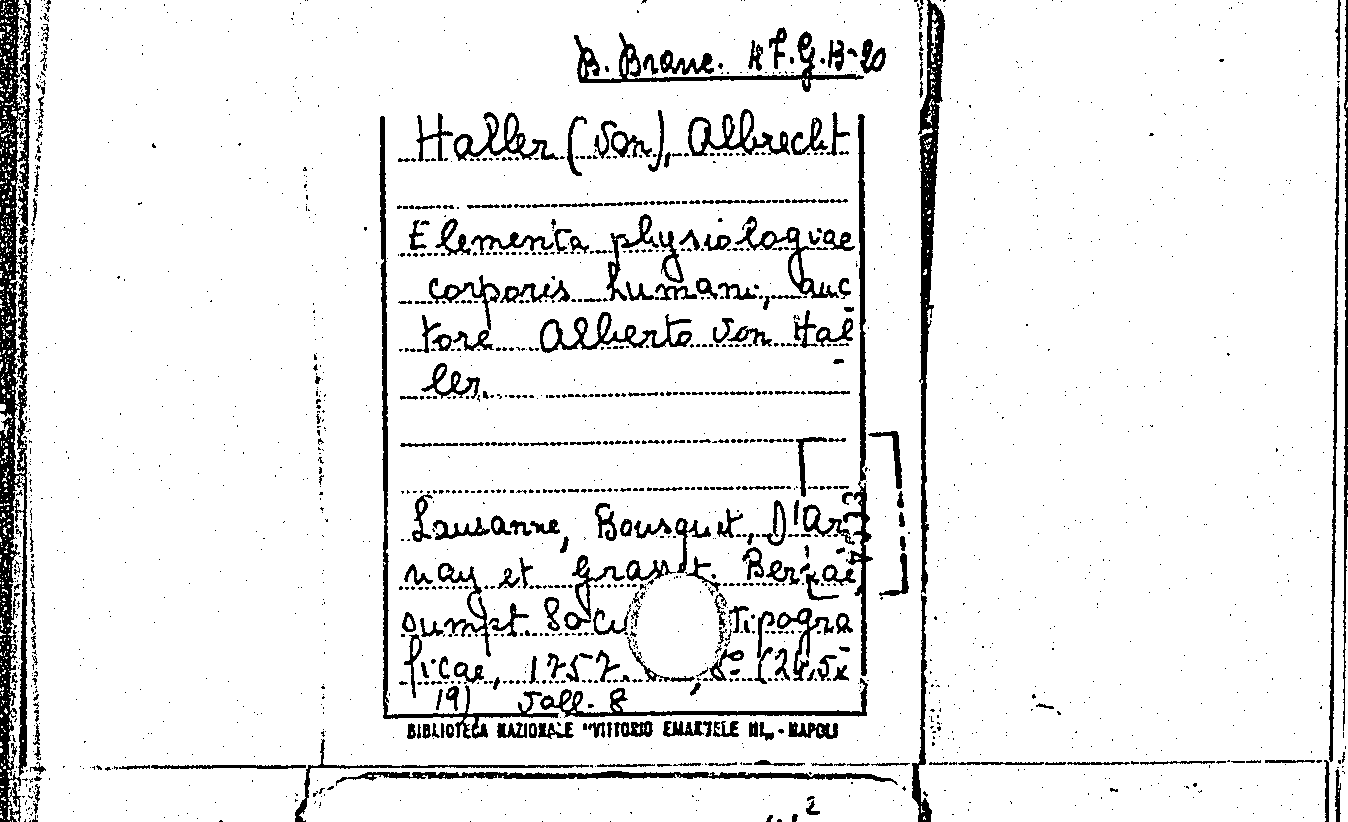 B. Branc. 127.G.13-20
Haller (von), Albrecht
Elementa physiologiae
corporis humani, auc
tore Alberto von Hal
ler.
Lausanne, Bousquet, D'Ar
nay et Grasset. Bernae
sumpt. Soci tipogra
ficae, 1757. 8° (24,5x
19) voll. 8
BIBLIOTECA NAZIONALE "VITTORIO EMANUELE III" - NAPOLI
2